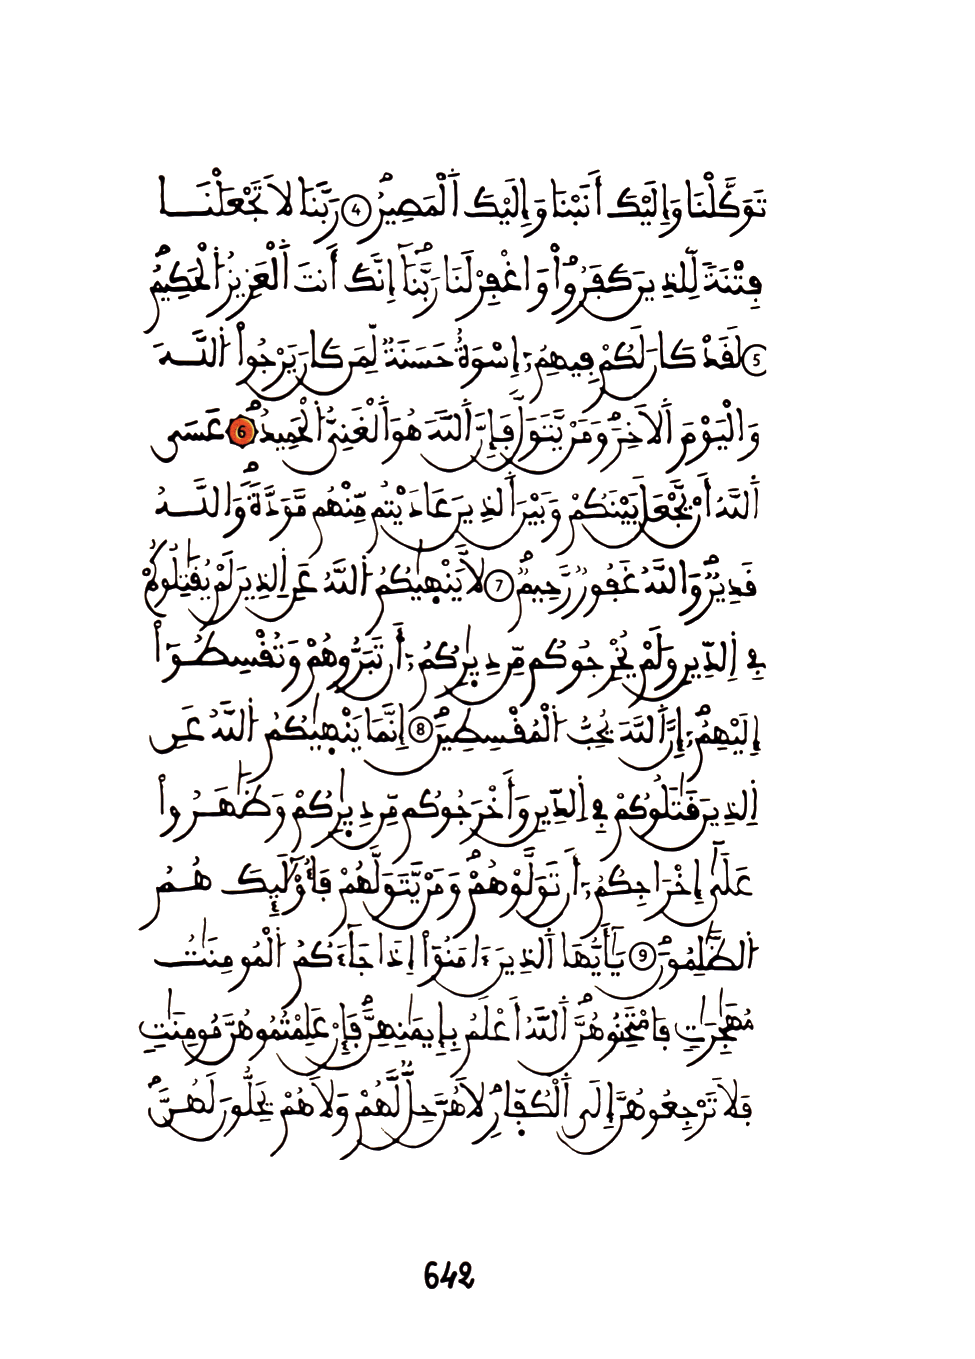 تَوَكَّلْنَا وَإِلَيْكَ أَنَبْنَا وَإِلَيْكَ اَ۬لْمَصِيرُۖ 4 رَبَّنَا لَا تَجْعَلْنَا
فِتْنَةٗ لِّلذِينَ كَفَرُواْۖ وَاغْفِرْ لَنَا رَبَّنَآۖ إِنَّكَ أَنتَ اَ۬لْعَزِيزُ اُ۬لْحَكِيمُۖ
5 لَقَدْ كَانَ لَكُمْ فِيهِمُۥٓ إِسْوَةٌ حَسَنَةٞ لِّمَن كَانَ يَرْجُواْ اُ۬للَّهَ
وَالْيَوْمَ اَ۬لَاخِرَۖ وَمَنْ يَّتَوَلَّ فَإِنَّ اَ۬للَّهَ هُوَ اَ۬لْغَنِيُّ اُ۬لْحَمِيدُۖ 6 عَسَى
اَ۬للَّهُ أَنْ يَّجْعَلَ بَيْنَكُمْ وَبَيْنَ اَ۬لذِينَ عَادَيْتُم مِّنْهُم مَّوَدَّةٗۖ وَاللَّهُ
قَدِيرٞۖ وَاللَّهُ غَفُورٞ رَّحِيمٞۖ 7 لَّا يَنْهٜيٰكُمُ اُ۬للَّهُ عَنِ اِ۬لذِينَ لَمْ يُقَٰتِلُوكُمْ
فِي اِ۬لدِّينِ وَلَمْ يُخْرِجُوكُم مِّن دِيٰٜرِكُمُۥٓ أَن تَبَرُّوهُمْ وَتُقْسِطُوٓاْ
إِلَيْهِمُۥٓۖ إِنَّ اَ۬للَّهَ يُحِبُّ اُ۬لْمُقْسِطِينَۖ 8 إِنَّمَا يَنْهٜيٰكُمُ اُ۬للَّهُ عَنِ
اِ۬لذِينَ قَٰتَلُوكُمْ فِي اِ۬لدِّينِ وَأَخْرَجُوكُم مِّن دِيٰٜرِكُمْ وَظَٰهَرُواْ
عَلَىٰٓ إِخْرَاجِكُمُۥٓ أَن تَوَلَّوْهُمْۖ وَمَنْ يَّتَوَلَّهُمْ فَأُوْلَٰٓئِكَ هُمُ
اُ۬لظَّٰلِمُونَۖ 9 يَٰٓأَيُّهَا اَ۬لذِينَ ءَامَنُوٓاْ إِذَا جَآءَكُمُ اُ۬لْمُومِنَٰتُ
مُهَٰجِرَٰتٖ فَامْتَحِنُوهُنَّۖ اَ۬للَّهُ أَعْلَمُ بِإِيمَٰنِهِنَّۖ فَإِنْ عَلِمْتُمُوهُنَّ مُومِنَٰتٖ
فَلَا تَرْجِعُوهُنَّ إِلَى اَ۬لْكُفّ۪ارِۖ لَا هُنَّ حِلّٞ لَّهُمْ وَلَا هُمْ يَحِلُّونَ لَهُنَّۖ
642